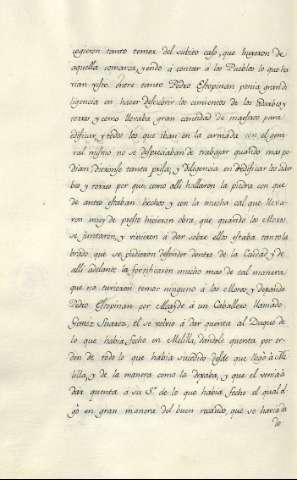 cogieron tanto temor del subito caso, que huyeron de
aquella comarca, yendo á contar á los Pueblos lo que ha
vian visto. entre tanto Pedro Estopiñan ponia grande di
ligencia en hacer descubrir los cimientos de los adarbes y
torres y como llevaba gran cantidad de maestros para
edificar, y todos los que iban en la armada con el gene
ral mismo no se despreciaban de trabajar quando mas po
dian, dieronse tanta prisa, y diligencia en reedificar los adar
bes, y torres por que como alli hallaron la piedra con que
de antes estaban hechos, y con la mucha cal que lleva
ron muy de presto hicieron obra, que quando los Moros
se juntaron, y vinieron á dar sobre ellos estaba tanto la
brado que se pudieron defender dentro de la Ciudad, y de
alli adelante la fortificaron mucho mas de tal manera
que no tuvieron temor ninguno á los Moros, y dexando
Pedro Estopiñan por Alcayde á un Caballero llamado
Gomez Suarez, él se volvio á dar quenta al Duque de
lo que habia fecho en Melilla, dandole quenta por or
den de todo lo que habia sucedido desde que llegó á Me
lilla, y de la manera como la dexaba, y que el venia á
dar quenta á su S.ª de lo que habia fecho el qual
gó en gran manera del buen recaudo, que se havia da
do